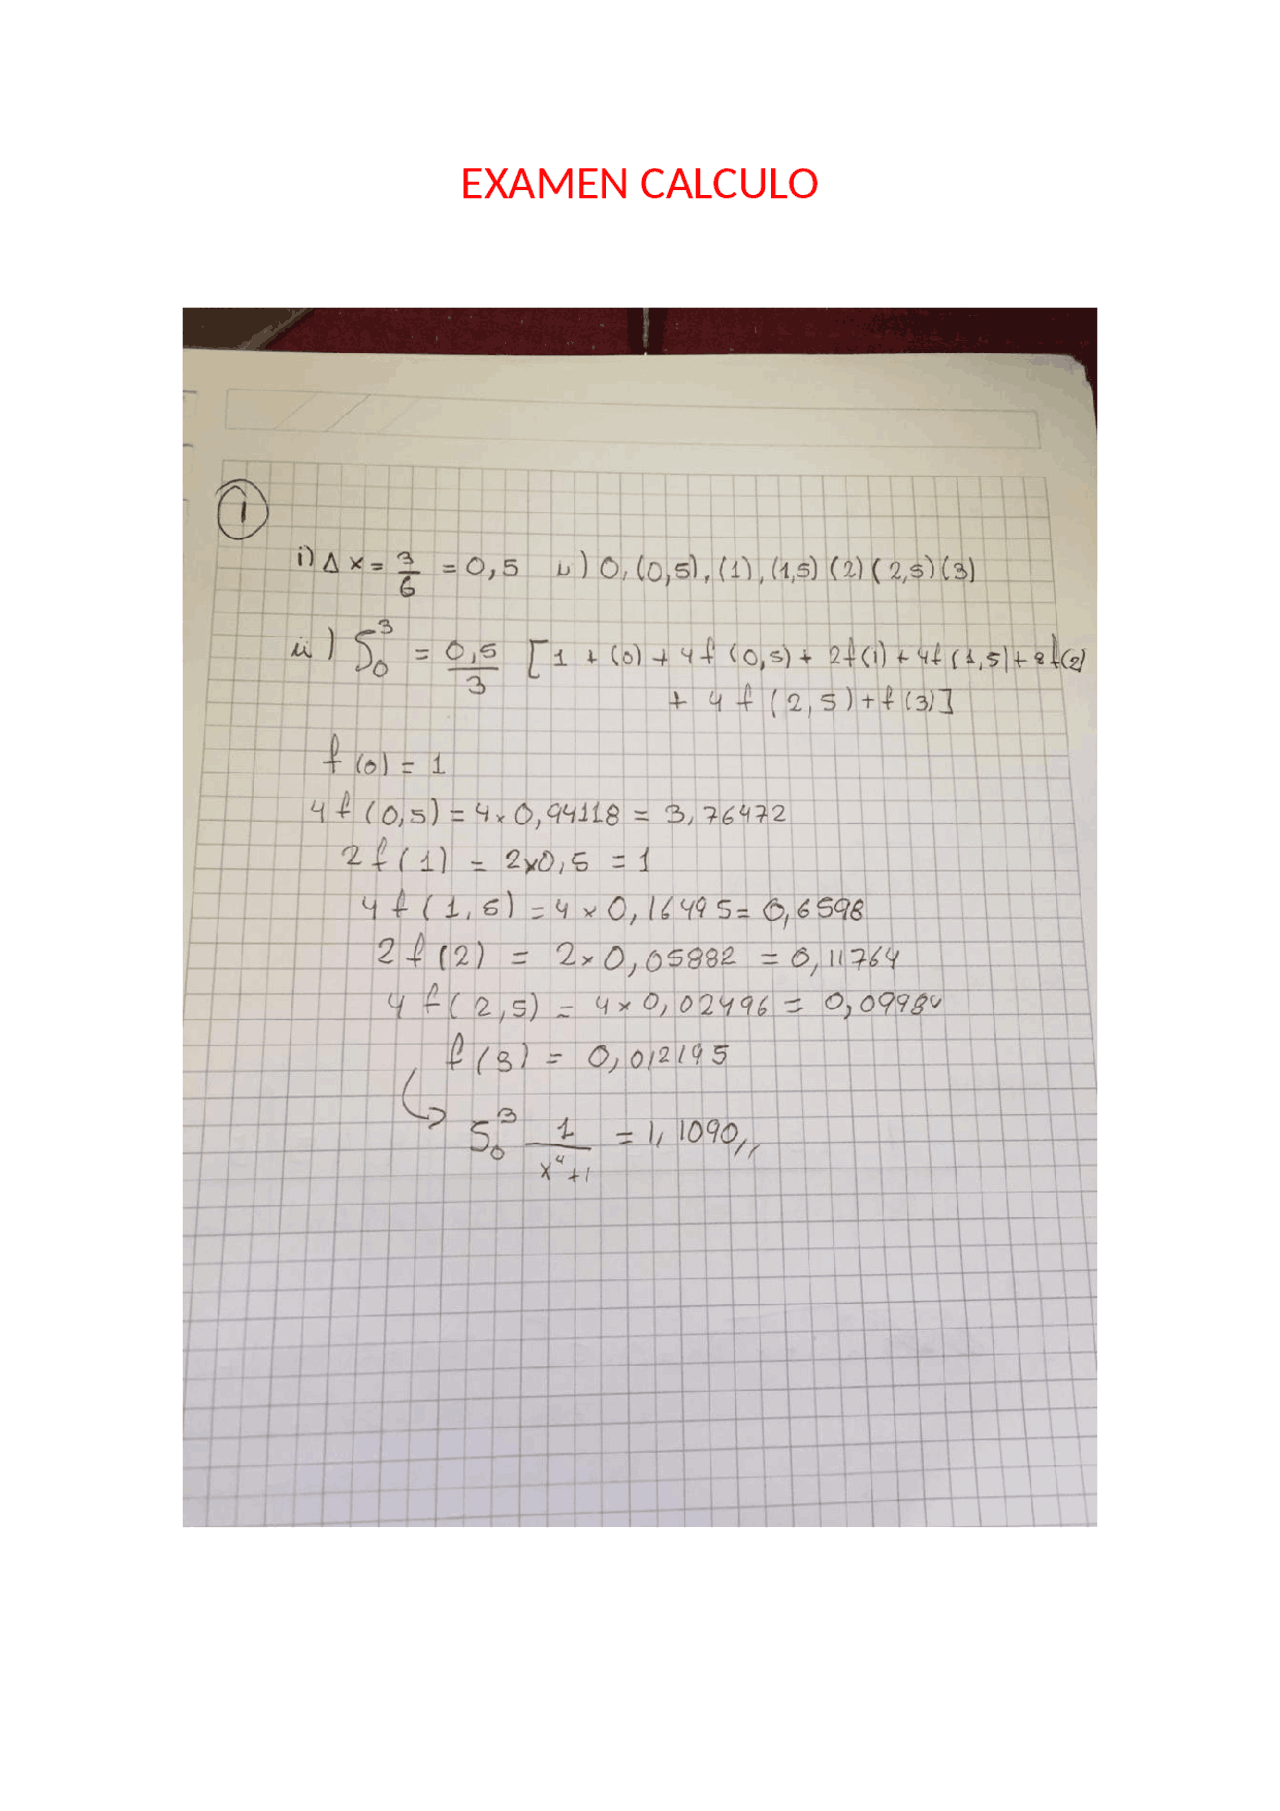 EXAMEN CALCULO
1
i) Δx = 3/6 = 0,5 ii) 0, (0,5), (1), (1,5) (2) (2,5) (3)
iii) S₀³ = 0,5/3 [1 + (0) + 4f (0,5) + 2f(1) + 4f (1,5) + 2f(2)
+ 4 f (2,5) + f (3)]
f (0) = 1
4 f (0,5) = 4 x 0,94118 = 3,76472
2 f (1) = 2x0,5 = 1
4 f (1,5) = 4 x 0,16495 = 0,6598
2 f (2) = 2 x 0,05882 = 0,11764
4 f (2,5) = 4 x 0,02496 = 0,09984
f (3) = 0,012195
↳ S₀³ 1/x⁴+1 = 1,1090,,